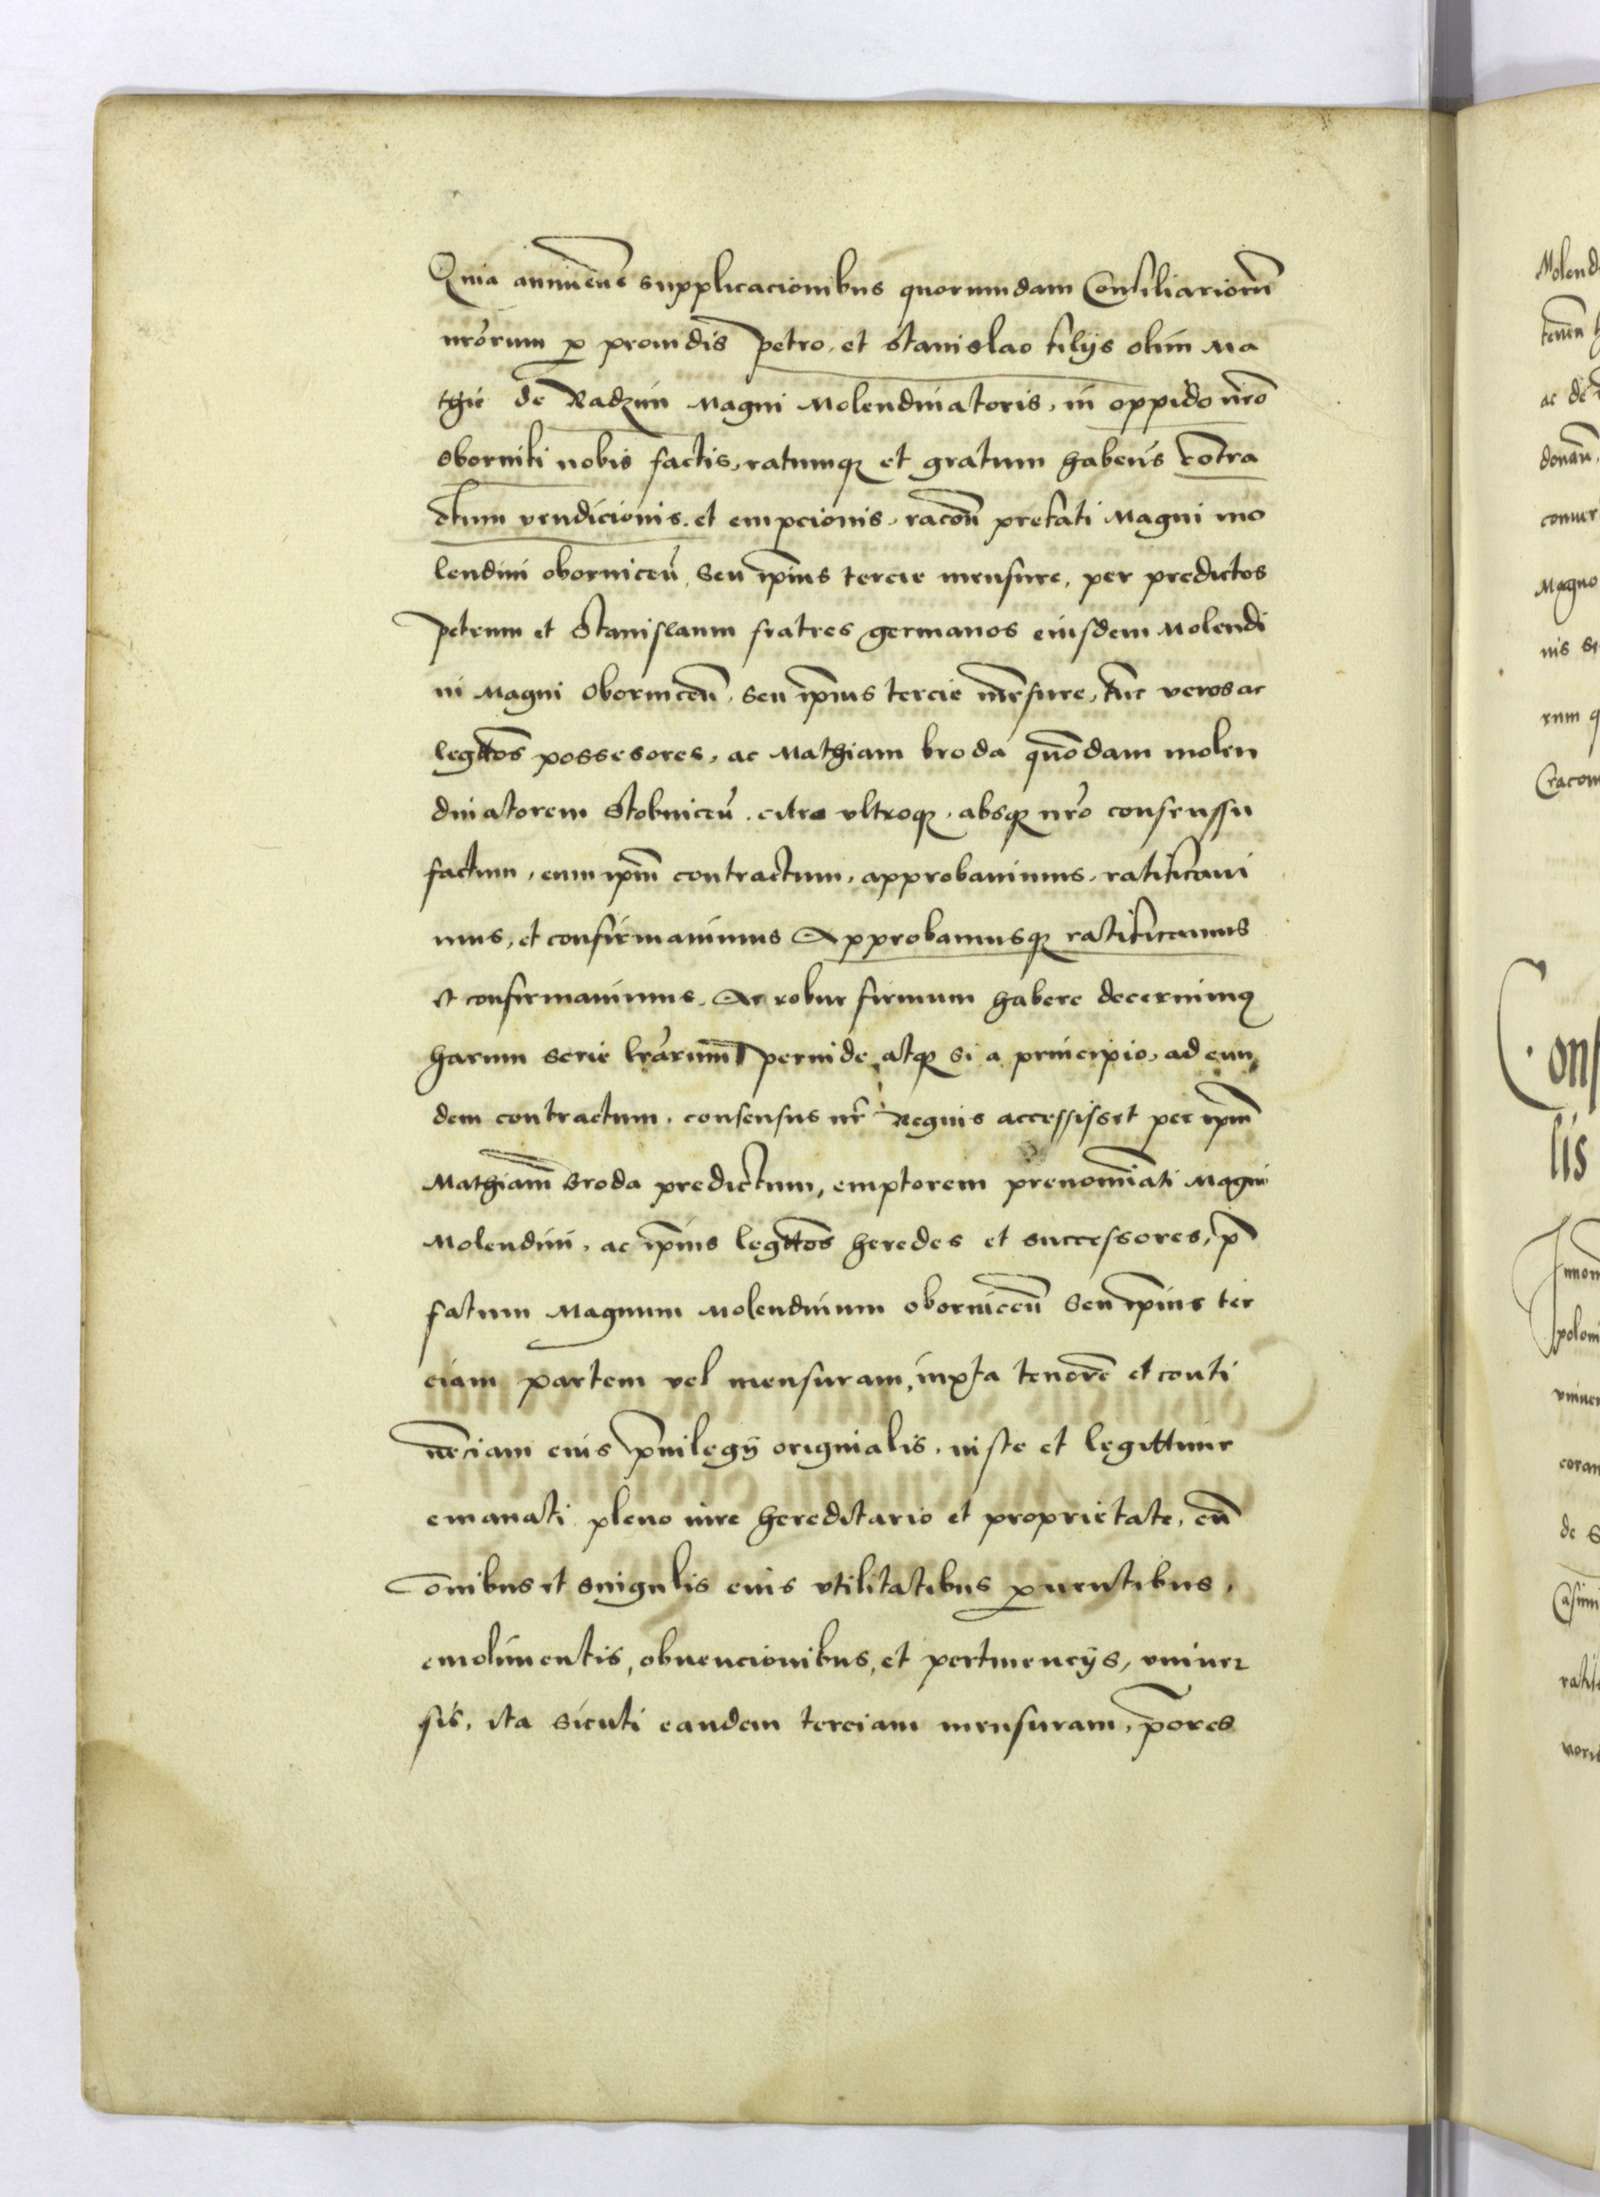 Quia annueñ supplicacionibus quorumdam Consiliariorũ
nr̃orum ꝑ prouidis Petro, et Stanislao filijs olim Ma
thie de Radzim Magni Molendinatoris, in oppido nr̃o
Oborniki nobis factis, ratumqꝫ et gratum habeñs cõtra
ctum vendicionis et empcionis, racoñ prefati Magni mo
lendini oborniceñ, seu ip̃ius tercie mensure, per predictos
Petrum et Stanislaum fratres germanos eiusdem Molendi
ni Magni Oborniceñ, seu ip̃ius tercie mẽsure, tũc veros ac
legttõs possesores, ac Mathiam broda quõdam molen
dinatorem Stobniceñ, citra vltroqꝫ, absqꝫ nr̃o consenssu
factum, eum ip̃m contractum, approbauimus, ratificaui
mus, et confirmauimus Approbamusqꝫ ratificamus
et confirmauimus, Ac robur firmum habere decernimꝰ
harum serie lr̃arum perinde atqꝫ si a principio, ad eun
dem contractum, consensus nr̃ Regius accessisset per ip̃m
Mathiam Broda predictum, emptorem prenom̃iati Magni
Molendini, ac ip̃ius legttõs heredes et successores, p̃
fatum Magnum Molendinum oborniceñ seu ip̃ius ter
ciam partem vel mensuram, iuxta tenorẽ et conti
nẽciam eius p̃uilegij originalis, iuste et legittime
emanati pleno iure hereditario et proprietate, cũ
om̃ibus et singulis eius vtilitatibus ꝓuentibus,
emolimentis, obuencionibus, et pertinencijs, vniuer
sis, ita sicuti eandem terciam mensuram, p̃ores